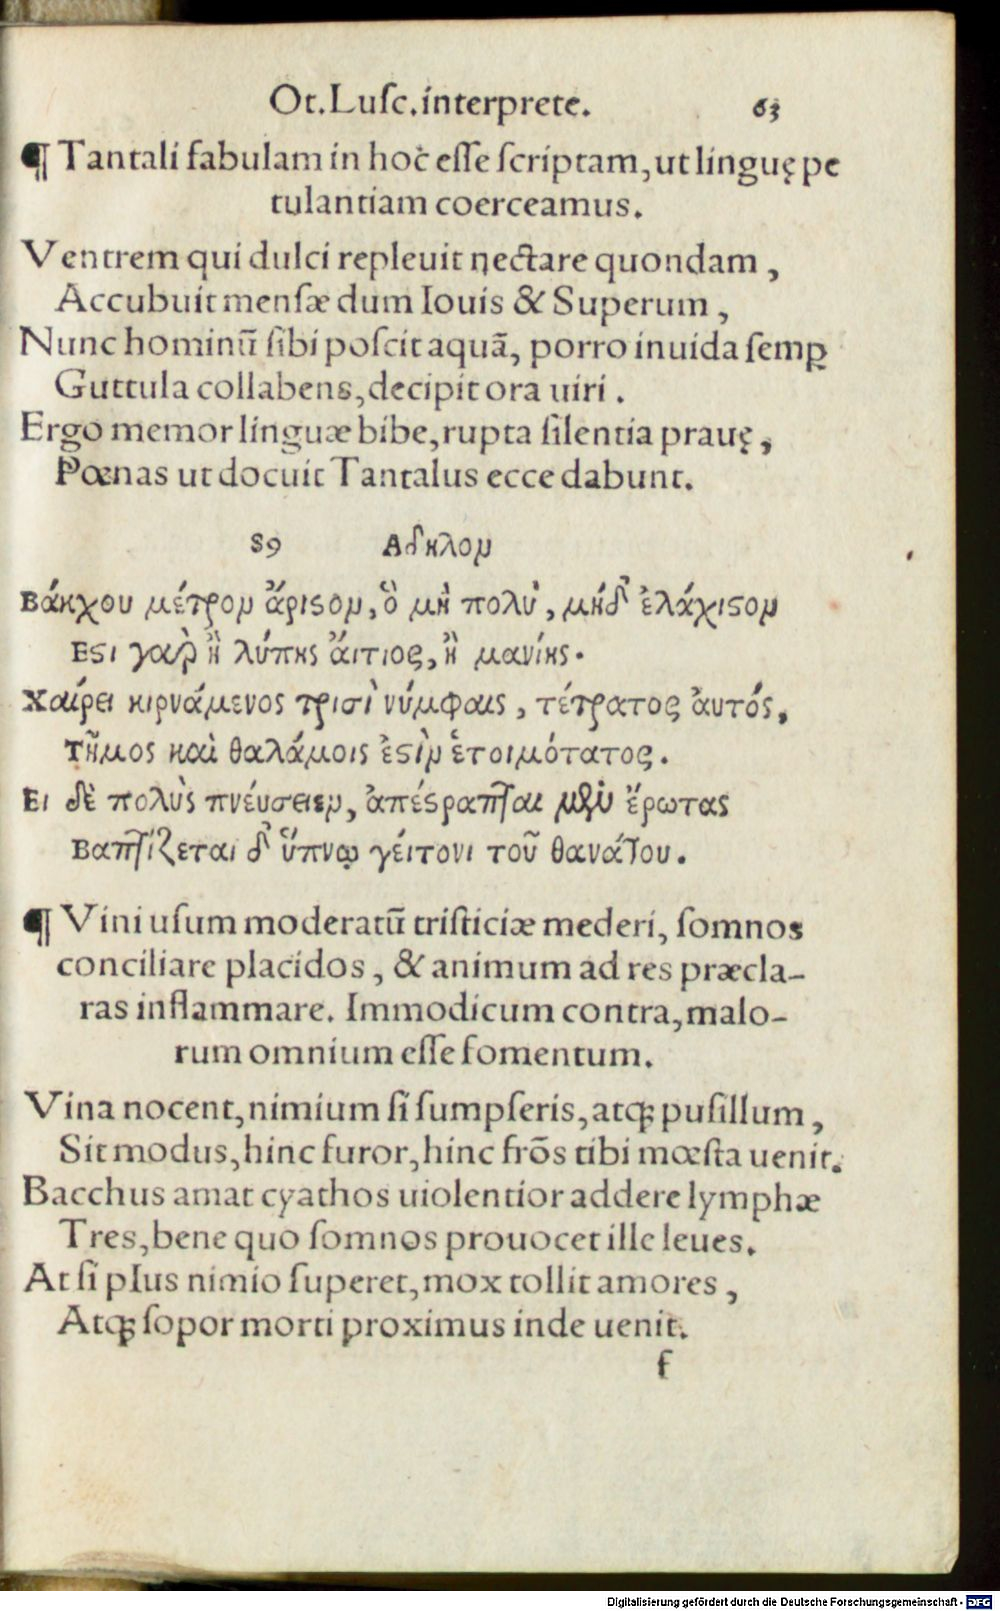 Ot. Luſc. interprete. 63
¶ Tantali fabulam in hoc eſſe ſcriptam, ut linguę pe
tulantiam coerceamus.
Ventrem qui dulci repleuit nectare quondam,
Accubuit menſæ dum Iouis & Superum,
Nunc hominū ſibi poſcit aquā, porro inuida ſemꝑ
Guttula collabens, decipit ora uiri.
Ergo memor linguæ bibe, rupta ſilentia prauę,
Pœnas ut docuit Tantalus ecce dabunt.
89 Αδηλον
Βάκχου μέτρον ἄριςον, ὃ μὴ πολὺ, μήδ' ἐλάχιςον
Εςι γαὰρ ἢ λύπης ἄιτιος, ἢ μανίης.
Χαίρει κιρνάμενος τρισὶ νύμφαις, τέτρατος ἀυτός,
Τῆμος καὶ θαλάμοις ἐςὶν ἑτοιμότατος.
Ει δὲ πολὺς πνέυσειεν, ἀπέςραπται μὲν ἔρωτας
Βαπτίζεται δ' ὕπνῳ γέιτονι τοῦ θανάτου.
¶ Vini uſum moderatū triſticiæ mederi, ſomnos
conciliare placidos, & animum ad res præcla-
ras inflammare. Immodicum contra, malo-
rum omnium eſſe fomentum.
Vina nocent, nimium ſi ſumpſeris, atq; puſillum,
Sit modus, hinc furor, hinc frōs tibi mœſta uenit.
Bacchus amat cyathos uiolentior addere lymphæ
Tres, bene quo ſomnos prouocet ille leues.
At ſi plus nimio ſuperet, mox tollit amores,
Atq; ſopor morti proximus inde uenit.
f
Digitalisierung gefördert durch die Deutsche Forschungsgemeinschaft - DFG